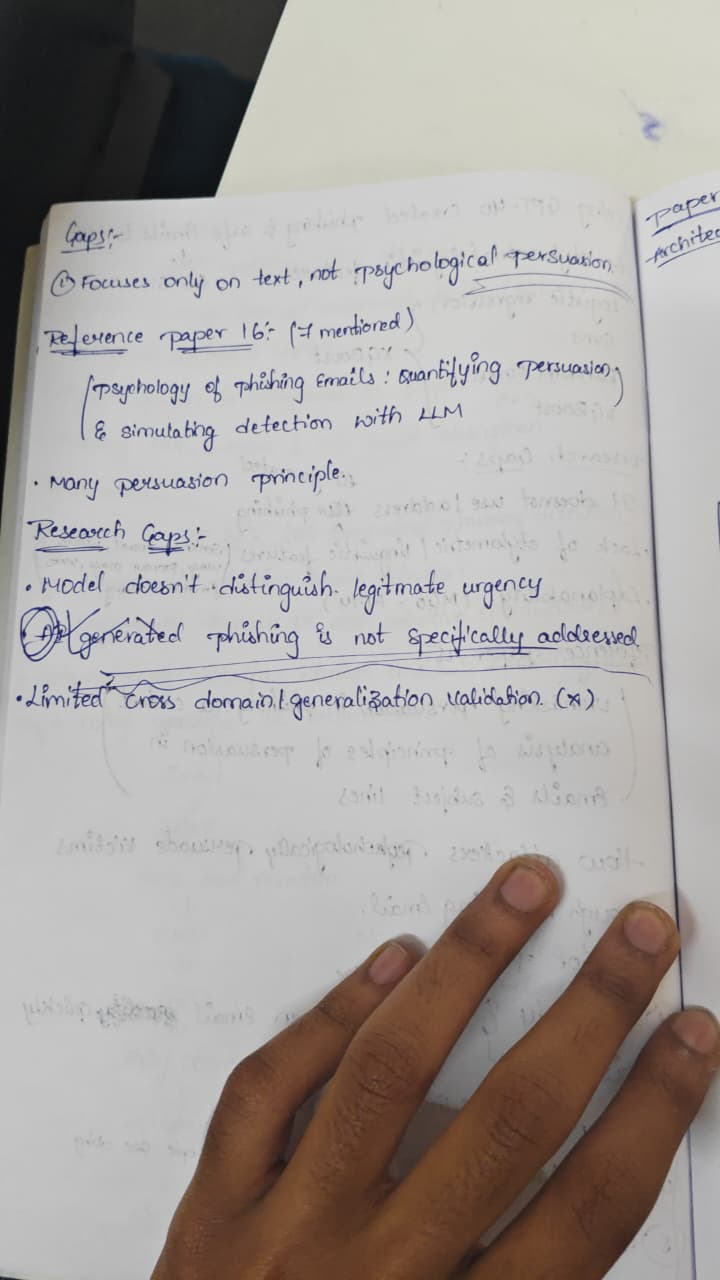 Gaps:-
① Focuses only on text, not psychological persuasion.
Reference paper 16:- (7 mentioned)
psychology of phishing Emails: Quantifying persuasion
& simulating detection with LLM
• Many persuasion principle.
Research Gaps:-
• Model doesn't distinguish legitmate urgency
generated phishing is not specifically addressed
• Limited cross domain / generalization validation. (*)
paper
Architec